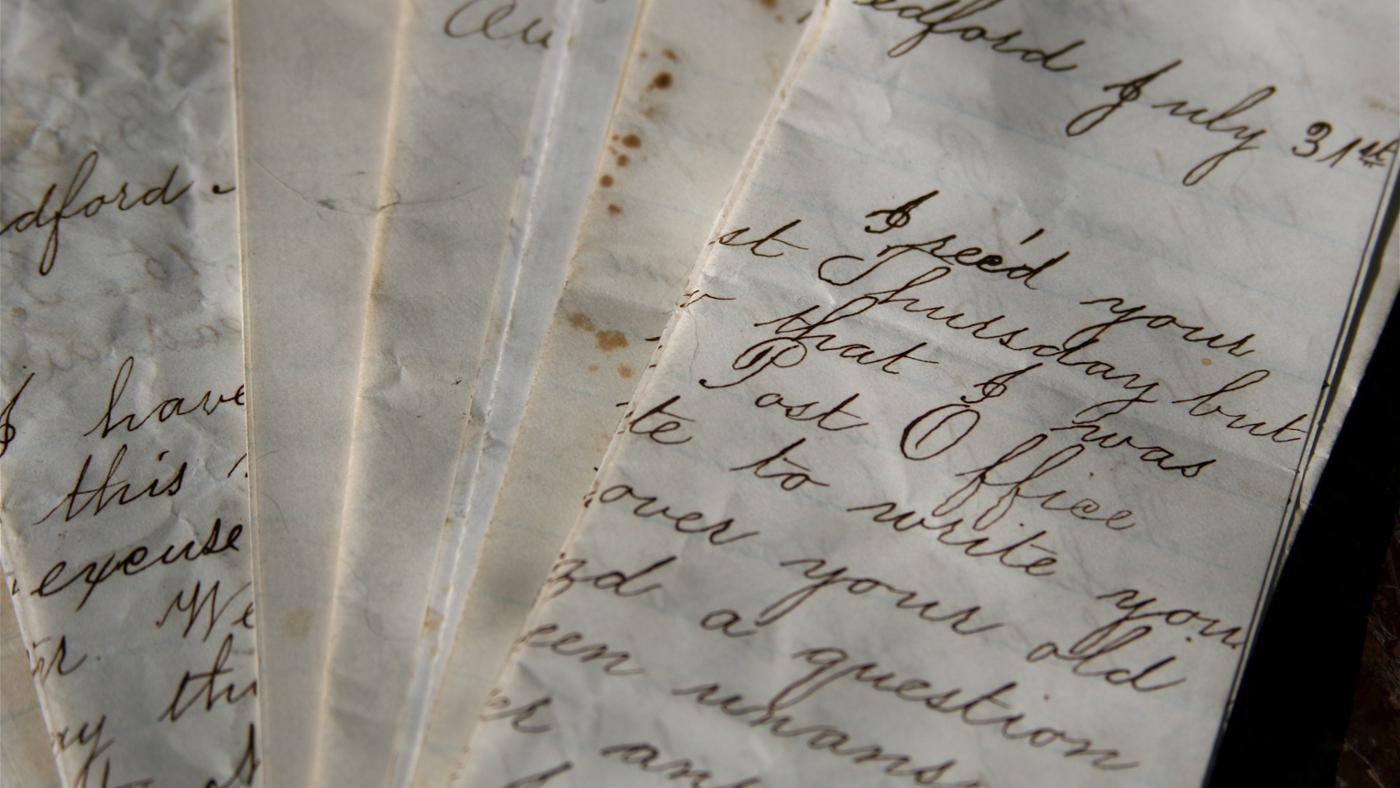 dford
I have
this
excuse
We
thi
Au
edford July 31st
I rec'd your
st Thursday but
that I was
Post Office
te to write you
over your old
zd a question
een unans
er any